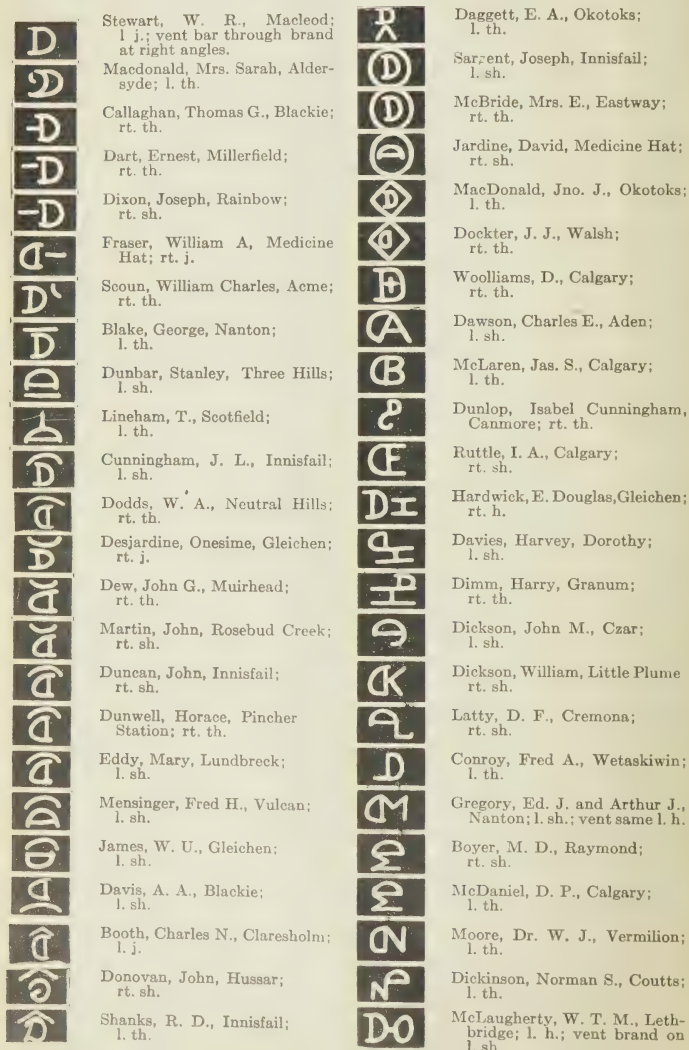 Stewart, W. R., Macleod;
l j.; vent bar through brand
at right angles.
Macdonald, Mrs. Sarah, Alder-
syde; l. th.
Callaghan, Thomas G., Blackie;
rt. th.
Dart, Ernest, Millerfield;
rt. th.
Dixon, Joseph, Rainbow;
rt. sh.
Fraser, William A, Medicine
Hat; rt. j.
Scoun, William Charles, Acme;
rt. th.
Blake, George, Nanton;
l. th.
Dunbar, Stanley, Three Hills;
l. sh.
Lineham, T., Scotfield;
l. th.
Cunningham, J. L., Innisfail;
l. sh.
Dodds, W. A., Neutral Hills;
rt. th.
Desjardine, Onesime, Gleichen;
rt. j.
Dew, John G., Muirhead;
rt. th.
Martin, John, Rosebud Creek;
rt. sh.
Duncan, John, Innisfail;
rt. sh.
Dunwell, Horace, Pincher
Station; rt. th.
Eddy, Mary, Lundbreck;
l. sh.
Mensinger, Fred H., Vulcan;
l. sh.
James, W. U., Gleichen;
l. sh.
Davis, A. A., Blackie;
l. sh.
Booth, Charles N., Claresholm;
l. j.
Donovan, John, Hussar;
rt. sh.
Shanks, R. D., Innisfail;
l. th.
Daggett, E. A., Okotoks;
l. th.
Sargent, Joseph, Innisfail;
l. sh.
McBride, Mrs. E., Eastway;
rt. th.
Jardine, David, Medicine Hat;
rt. sh.
MacDonald, Jno. J., Okotoks;
l. th.
Dockter, J. J., Walsh;
rt. th.
Woolliams, D., Calgary;
rt. th.
Dawson, Charles E., Aden;
l. sh.
McLaren, Jas. S., Calgary;
l. th.
Dunlop, Isabel Cunningham,
Canmore; rt. th.
Ruttle, I. A., Calgary;
rt. sh.
Hardwick, E. Douglas, Gleichen;
rt. h.
Davies, Harvey, Dorothy;
l. sh.
Dimm, Harry, Granum;
rt. th.
Dickson, John M., Czar;
l. sh.
Dickson, William, Little Plume
rt. sh.
Latty, D. F., Cremona;
rt. sh.
Conroy, Fred A., Wetaskiwin;
l. th.
Gregory, Ed. J. and Arthur J.,
Nanton; l. sh.; vent same l. h.
Boyer, M. D., Raymond;
rt. sh.
McDaniel, D. P., Calgary;
l. th.
Moore, Dr. W. J., Vermilion;
l. th.
Dickinson, Norman S., Coutts;
l. th.
McLaugherty, W. T. M., Leth-
bridge; l. h.; vent brand on
l. sh.